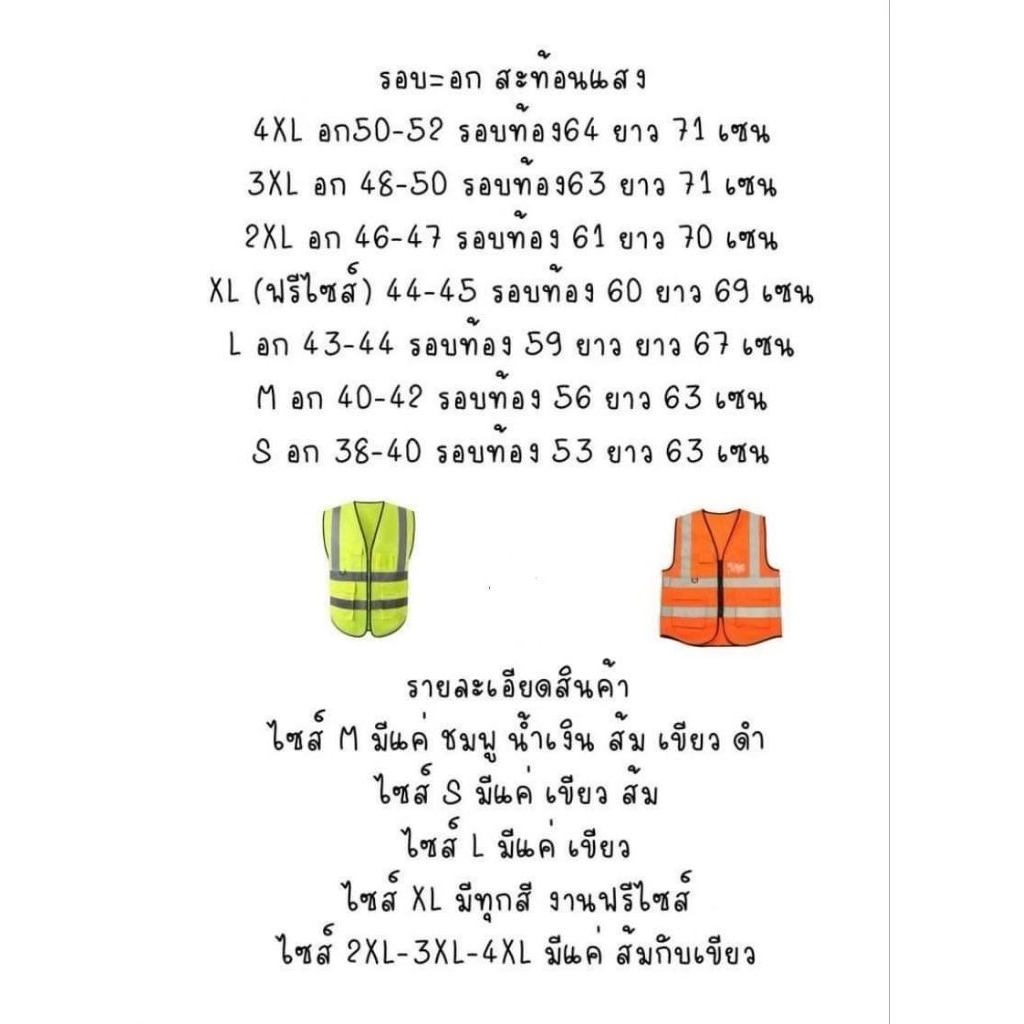 รอบ=อก สะท้อนแสง
4XL อก50-52 รอบท้อง64 ยาว 71 เซน
3XL อก 48-50 รอบท้อง63 ยาว 71 เซน
2XL อก 46-47 รอบท้อง 61 ยาว 70 เซน
XL (ฟรีไซส์) 44-45 รอบท้อง 60 ยาว 69 เซน
L อก 43-44 รอบท้อง 59 ยาว ยาว 67 เซน
M อก 40-42 รอบท้อง 56 ยาว 63 เซน
S อก 38-40 รอบท้อง 53 ยาว 63 เซน
รายละเอียดสินค้า
ไซส์ M มีแค่ ชมพู น้ำเงิน ส้ม เขียว ดำ
ไซส์ S มีแค่ เขียว ส้ม
ไซส์ L มีแค่ เขียว
ไซส์ XL มีทุกสี งานฟรีไซส์
ไซส์ 2XL-3XL-4XL มีแค่ ส้มกับเขียว